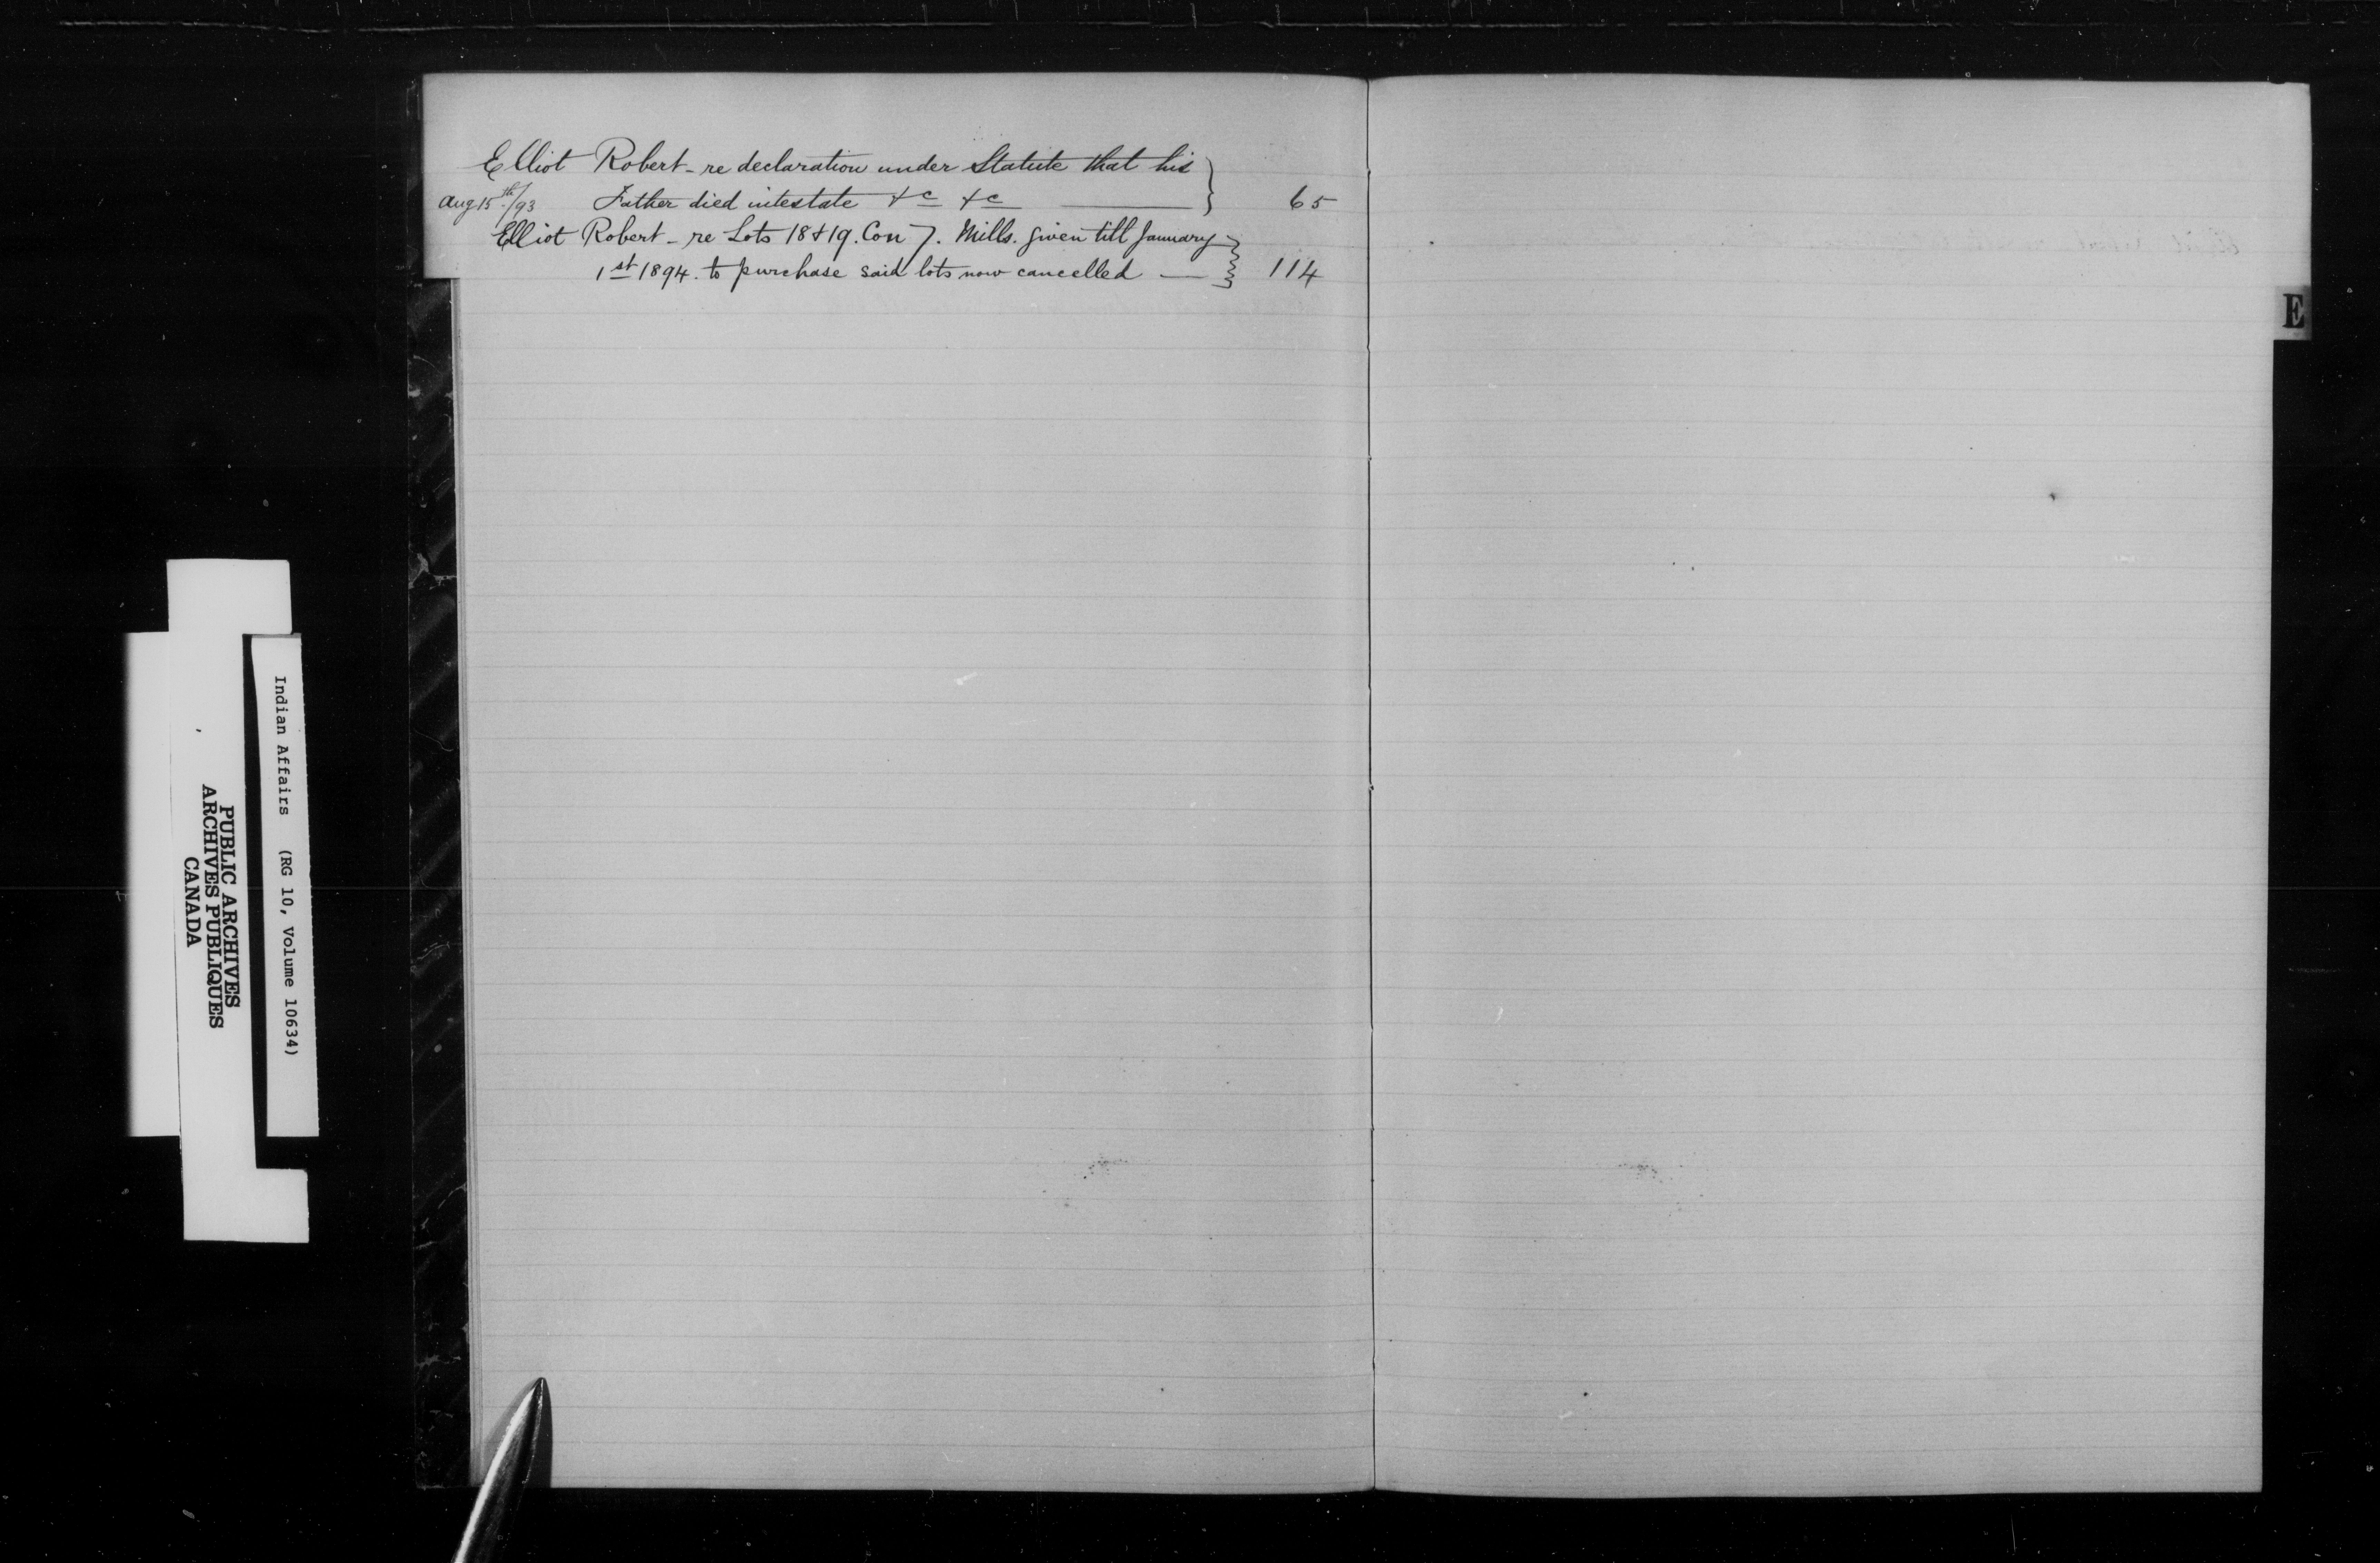 Elliot Robert - re declaration under Statute that his
Aug 15th/93 Father died intestate &c &c 65
Elliot Robert - re Lots 18 & 19. Con 7. Mills. given till January
1st 1894. to purchase said lots now cancelled — 114
E
Indian Affairs (RG 10, Volume 10634)
PUBLIC ARCHIVES
ARCHIVES PUBLIQUES
CANADA